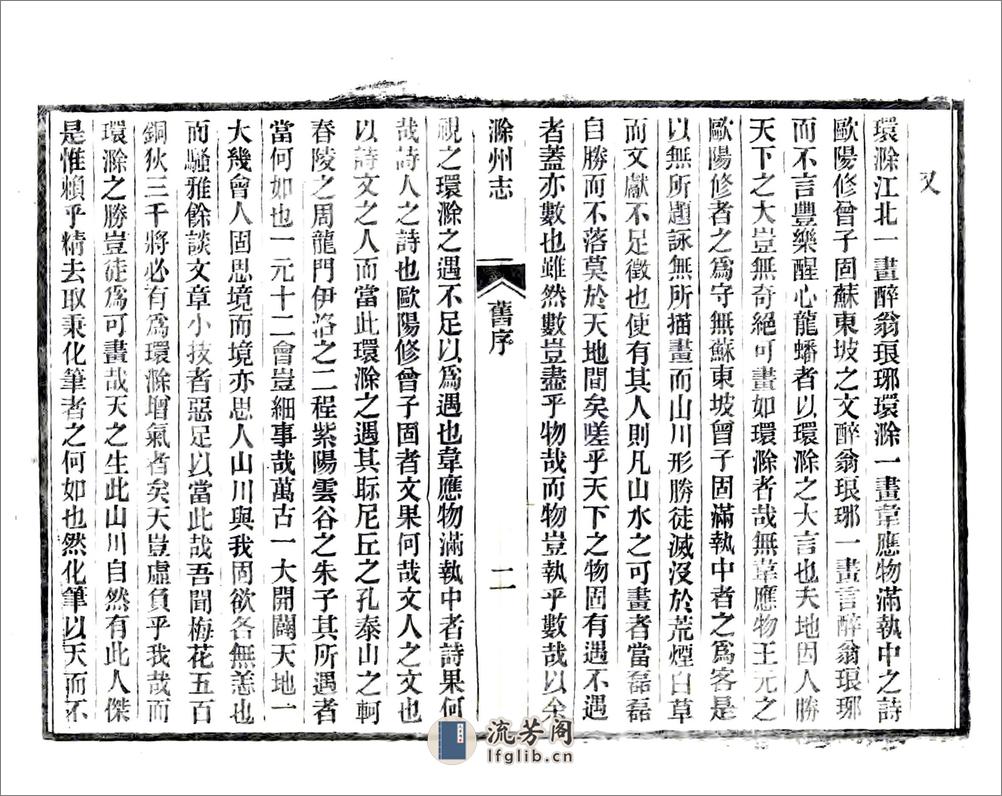 又
環滁江北一畫醉翁琅琊環滁一畫韋應物滿執中之詩
歐陽修曾子固蘇東坡之文醉翁琅琊一畫言醉翁琅琊
而不言豐樂醒心龍蟠者以環滁之大言也夫地因人勝
天下之大豈無奇絕可畫如環滁者哉無韋應物王元之
歐陽修者之爲守無蘇東坡曾子固滿執中者之爲客是
以無所題詠無所描畫而山川形勝徒滅沒於荒煙白草
而文獻不足徵也使有其人則凡山水之可畫者當磊磊
自勝而不落莫於天地間矣嗟乎天下之物固有遇不遇
者蓋亦數也雖然數豈盡乎物哉而物豈執乎數哉以矣
滁州志
舊序
二
視之環滁之遇不足以爲遇也韋應物滿執中者詩果何
哉詩人之詩也歐陽修曾子固者文果何哉文人之文也
以詩文之人而當此環滁之遇其眎尼丘之孔泰山之軻
春陵之周龍門伊洛之二程紫陽雲谷之朱子其所遇者
當何如也一元十二會豈細事哉萬古一大開闢天地一
大幾會人固思境而境亦思人山川與我固欲各無恙也
而騷雅餘談文章小技者惡足以當此哉吾聞梅花五百
銅狄三千將必有爲環滁增氣者矣天豈虛負乎我哉而
環滁之勝豈徒爲可畫哉天之生此山川自然有此人傑
是惟頼乎精去取秉化筆者之何如也然化筆以天而不
流芳阁
lfglib.cn